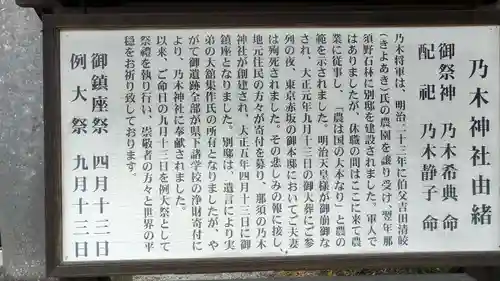 乃木神社由緒
御祭神　乃木希典命
配祀　乃木静子命
乃木将軍は、明治二十三年に伯父吉田清皎
(きよあき)氏の農園を譲り受け、翌年那
須野石林に別邸を建設されました。軍人で
はありましたが、休職の間はここに来て農
業に従事し、「農は国の大本なり」と農の
範を示されました。明治天皇様が御崩御な
され、大正元年九月十三日の御大葬にご参
列の夜、東京赤坂の御本邸においてご夫妻
は殉死されました。その悲しみの報に接し、
地元住民の方々が寄付を募り、那須の乃木
神社が創建され、大正五年四月十三日に御
鎮座となりました。別邸は、遺言により実
弟の大舘集作氏の所有となりましたが、や
がて御遺跡全部が県下諸学校の浄財寄付に
より、乃木神社に奉献されました。
以来、ご命日の九月十三日を例大祭として
祭礼を執り行い、崇敬者の方々と世界の平
穏をお祈り致しております。
御鎮座祭　四月十三日
例大祭　九月十三日